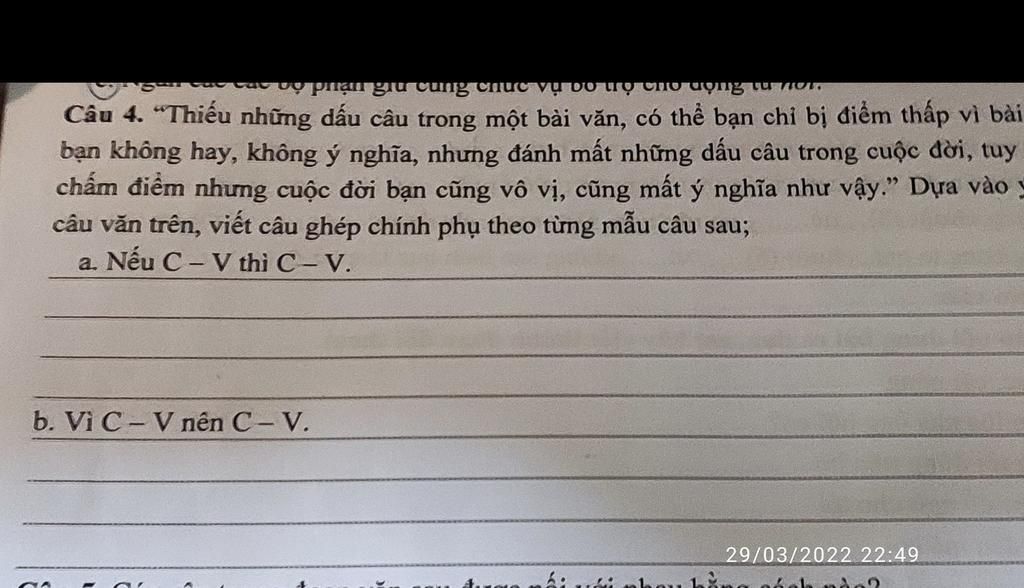 các bộ phận giữ cùng chức vụ bổ trợ cho động từ nơi.
Câu 4. “Thiếu những dấu câu trong một bài văn, có thể bạn chỉ bị điểm thấp vì bài
bạn không hay, không ý nghĩa, nhưng đánh mất những dấu câu trong cuộc đời, tuy
chấm điểm nhưng cuộc đời bạn cũng vô vị, cũng mất ý nghĩa như vậy.” Dựa vào
câu văn trên, viết câu ghép chính phụ theo từng mẫu câu sau;
a. Nếu C – V thì C – V.
b. Vì C – V nên C – V.
29/03/2022 22:49